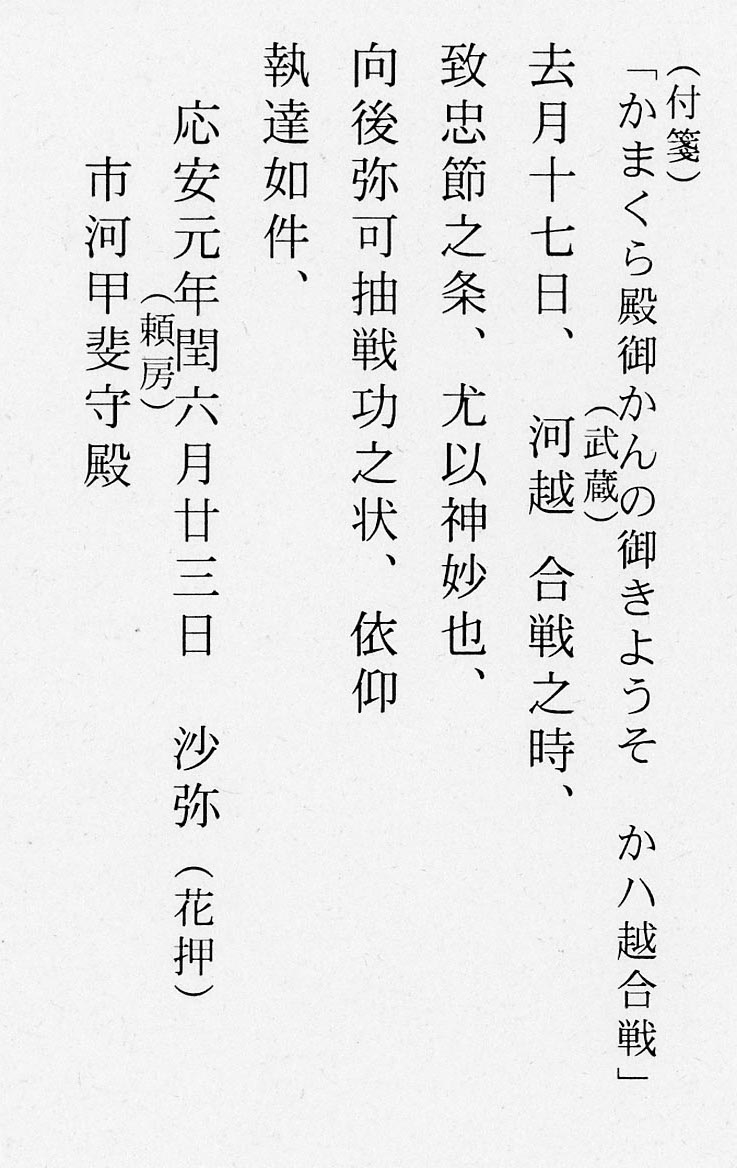 （付箋）
「かまくら殿御かんの御きようそ　かハ越合戦」
（武蔵）
去月十七日、　河越　合戦之時、
致忠節之条、尤以神妙也、
向後弥可抽戦功之状、依仰
執達如件、
応安元年閏六月廿三日　沙弥（花押）
（頼房）
市河甲斐守殿